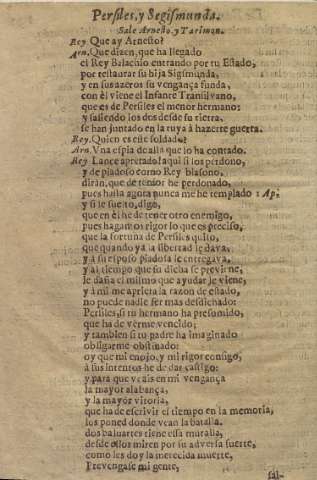 Persiles, y Segismunda.
Sale Arnesto, y Tarimon.
Rey Que ay Arnesto?
Arn. Que dizen, que ha llegado
el Rey Balachio entrando por tu Estado,
por restaurar su hija Sigismunda,
y en sus azeros su vengança funda,
con èl viene el Infante Transilvano,
que es de Persiles el menor hermano;
y saliendo los dos desde su tierra,
se han juntado en la tuya à hazerte guerra.
Rey. Quien es este soldado?
Arn. Vna espia de allà que lo ha contado.
Rey Lance apretado! aqui si los perdono,
y de piadoso como Rey blasono,
diràn, que de temor he perdonado,
pues hasta agora nunca me he templado: Ap.
y si le suelto, digo,
que en èl he de tener otro enemigo,
pues hagamos rigor lo que es preciso,
que la fortuna de Persiles quiso,
que quando yà la libertad le dava,
y à su esposo piadosa le entregava,
y al tiempo que su dicha se previene,
le daña el mismo que ayudarle viene,
y à mi me aprieta la razon de estado,
no puede nadie ser mas desdichado:
Persiles, si tu hermano ha presumido,
que ha de verme vencido;
y tambien si tu padre ha imaginado
obligarme obstinado;
oy que mi enojo, y mi rigor consigo,
à sus intentos he de dar castigo:
y para que veais en mi vengança
la mayor alabança,
y la mayor vitoria,
que ha de escrivir el tiempo en la memoria,
los poned donde vean la batalla.
dos baluartes tiene essa muralla,
desde ellos miren por su adversa suerte,
como les doy la merecida muerte,
Prevengase mi gente,
sal-